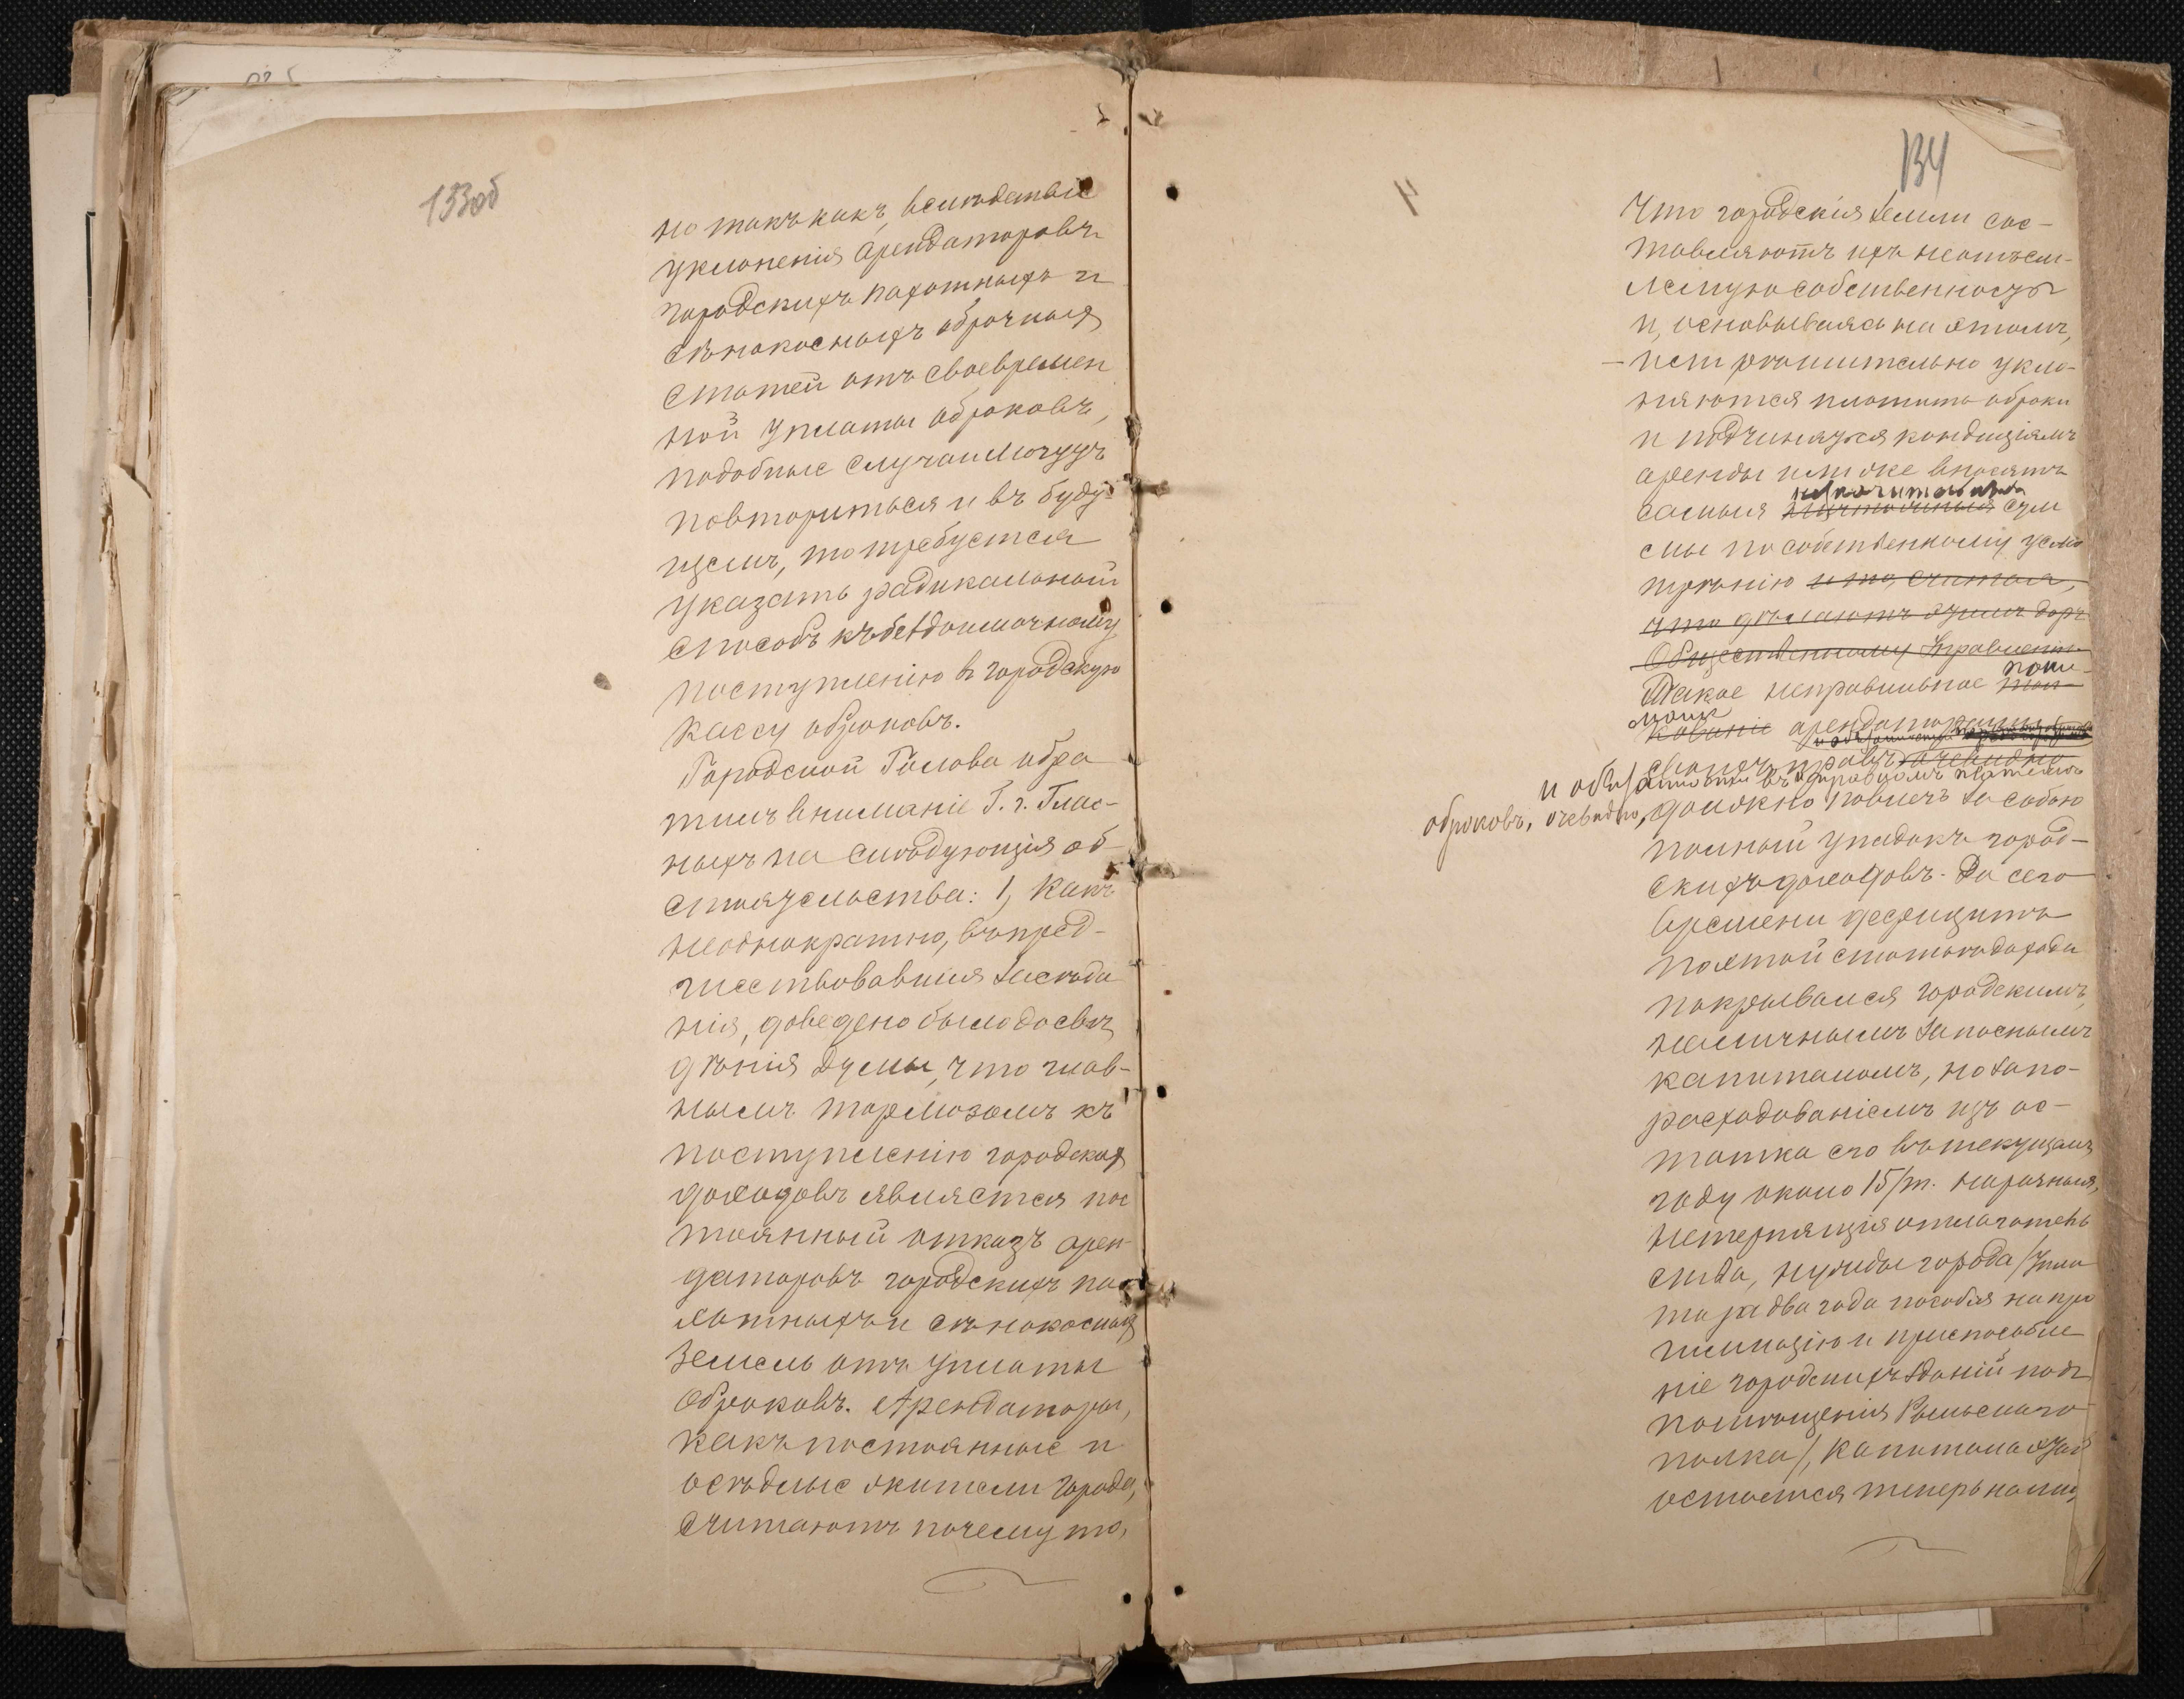 133об
но такъ какъ, вслѣдствіе
уклоненія арендаторовъ
городскихъ пахотныхъ и
сѣнокосныхъ оброчныхъ
статей отъ своевремен
ной уплаты оброковъ,
подобные случаи могутъ
повториться и въ буду-
щемъ, то требуется
указать радикальный
способъ къ бездоимочному
поступленію въ городскую
кассу оброковъ.
Городской Голова обра
тилъ вниманіе Г. г. Глас-
ныхъ на слѣдующія об-
стоятельства: 1, Какъ
неоднократно, въ пред-
шествовавшія засѣда
нія, доведено было до свѣ
дѣнія Думы, что глав-
нымъ тормозомъ къ
поступленію городскихъ
доходовъ является пос
тоянный отказъ арен-
даторовъ городскихъ па-
хотныхъ и сѣнокосныхъ
земель отъ уплаты
оброковъ. Арендаторы,
какъ постоянные и
осѣдлые жители города,
считаютъ почему то,
134
Что городскія земли сос-
тавляютъ ихъ неотъем-
лемую собственность
и, основываясь на этомъ,
или рѣшительно укло-
няются платить оброки
и подчиняться кондиціямъ
аренды или же вносятъ
незначительныя
самыя ничтожныя сум
мы по собственному усмо
трѣнію и то, считая,
что дѣлаютъ этимъ даръ
Общественному Управленію.
пони-
Такое неправильное тол-
маніе
кованіе арендаторами
своихъ правъ очевидно
и обязанностей къ исправнымъ платежамъ
оброковъ, очевидно, должно повлечь за собою
полный упадокъ город-
скихъ доходовъ. До сего
времени дефицитъ
по этой статьѣ дохода
покрывался городскимъ
наличнымъ запаснымъ
капиталомъ, но за по-
расходованіемъ изъ ос-
татка его въ текущемъ
году около 15/т. на разныя,
нетерпящія отлагатель
ства, нужды города /Упла
та за два года пособія на про
гимназію и приспособле
ніе городскихъ зданій подъ
помѣщенія Рыльскаго
полка/, капитала этого
остается теперь налиц